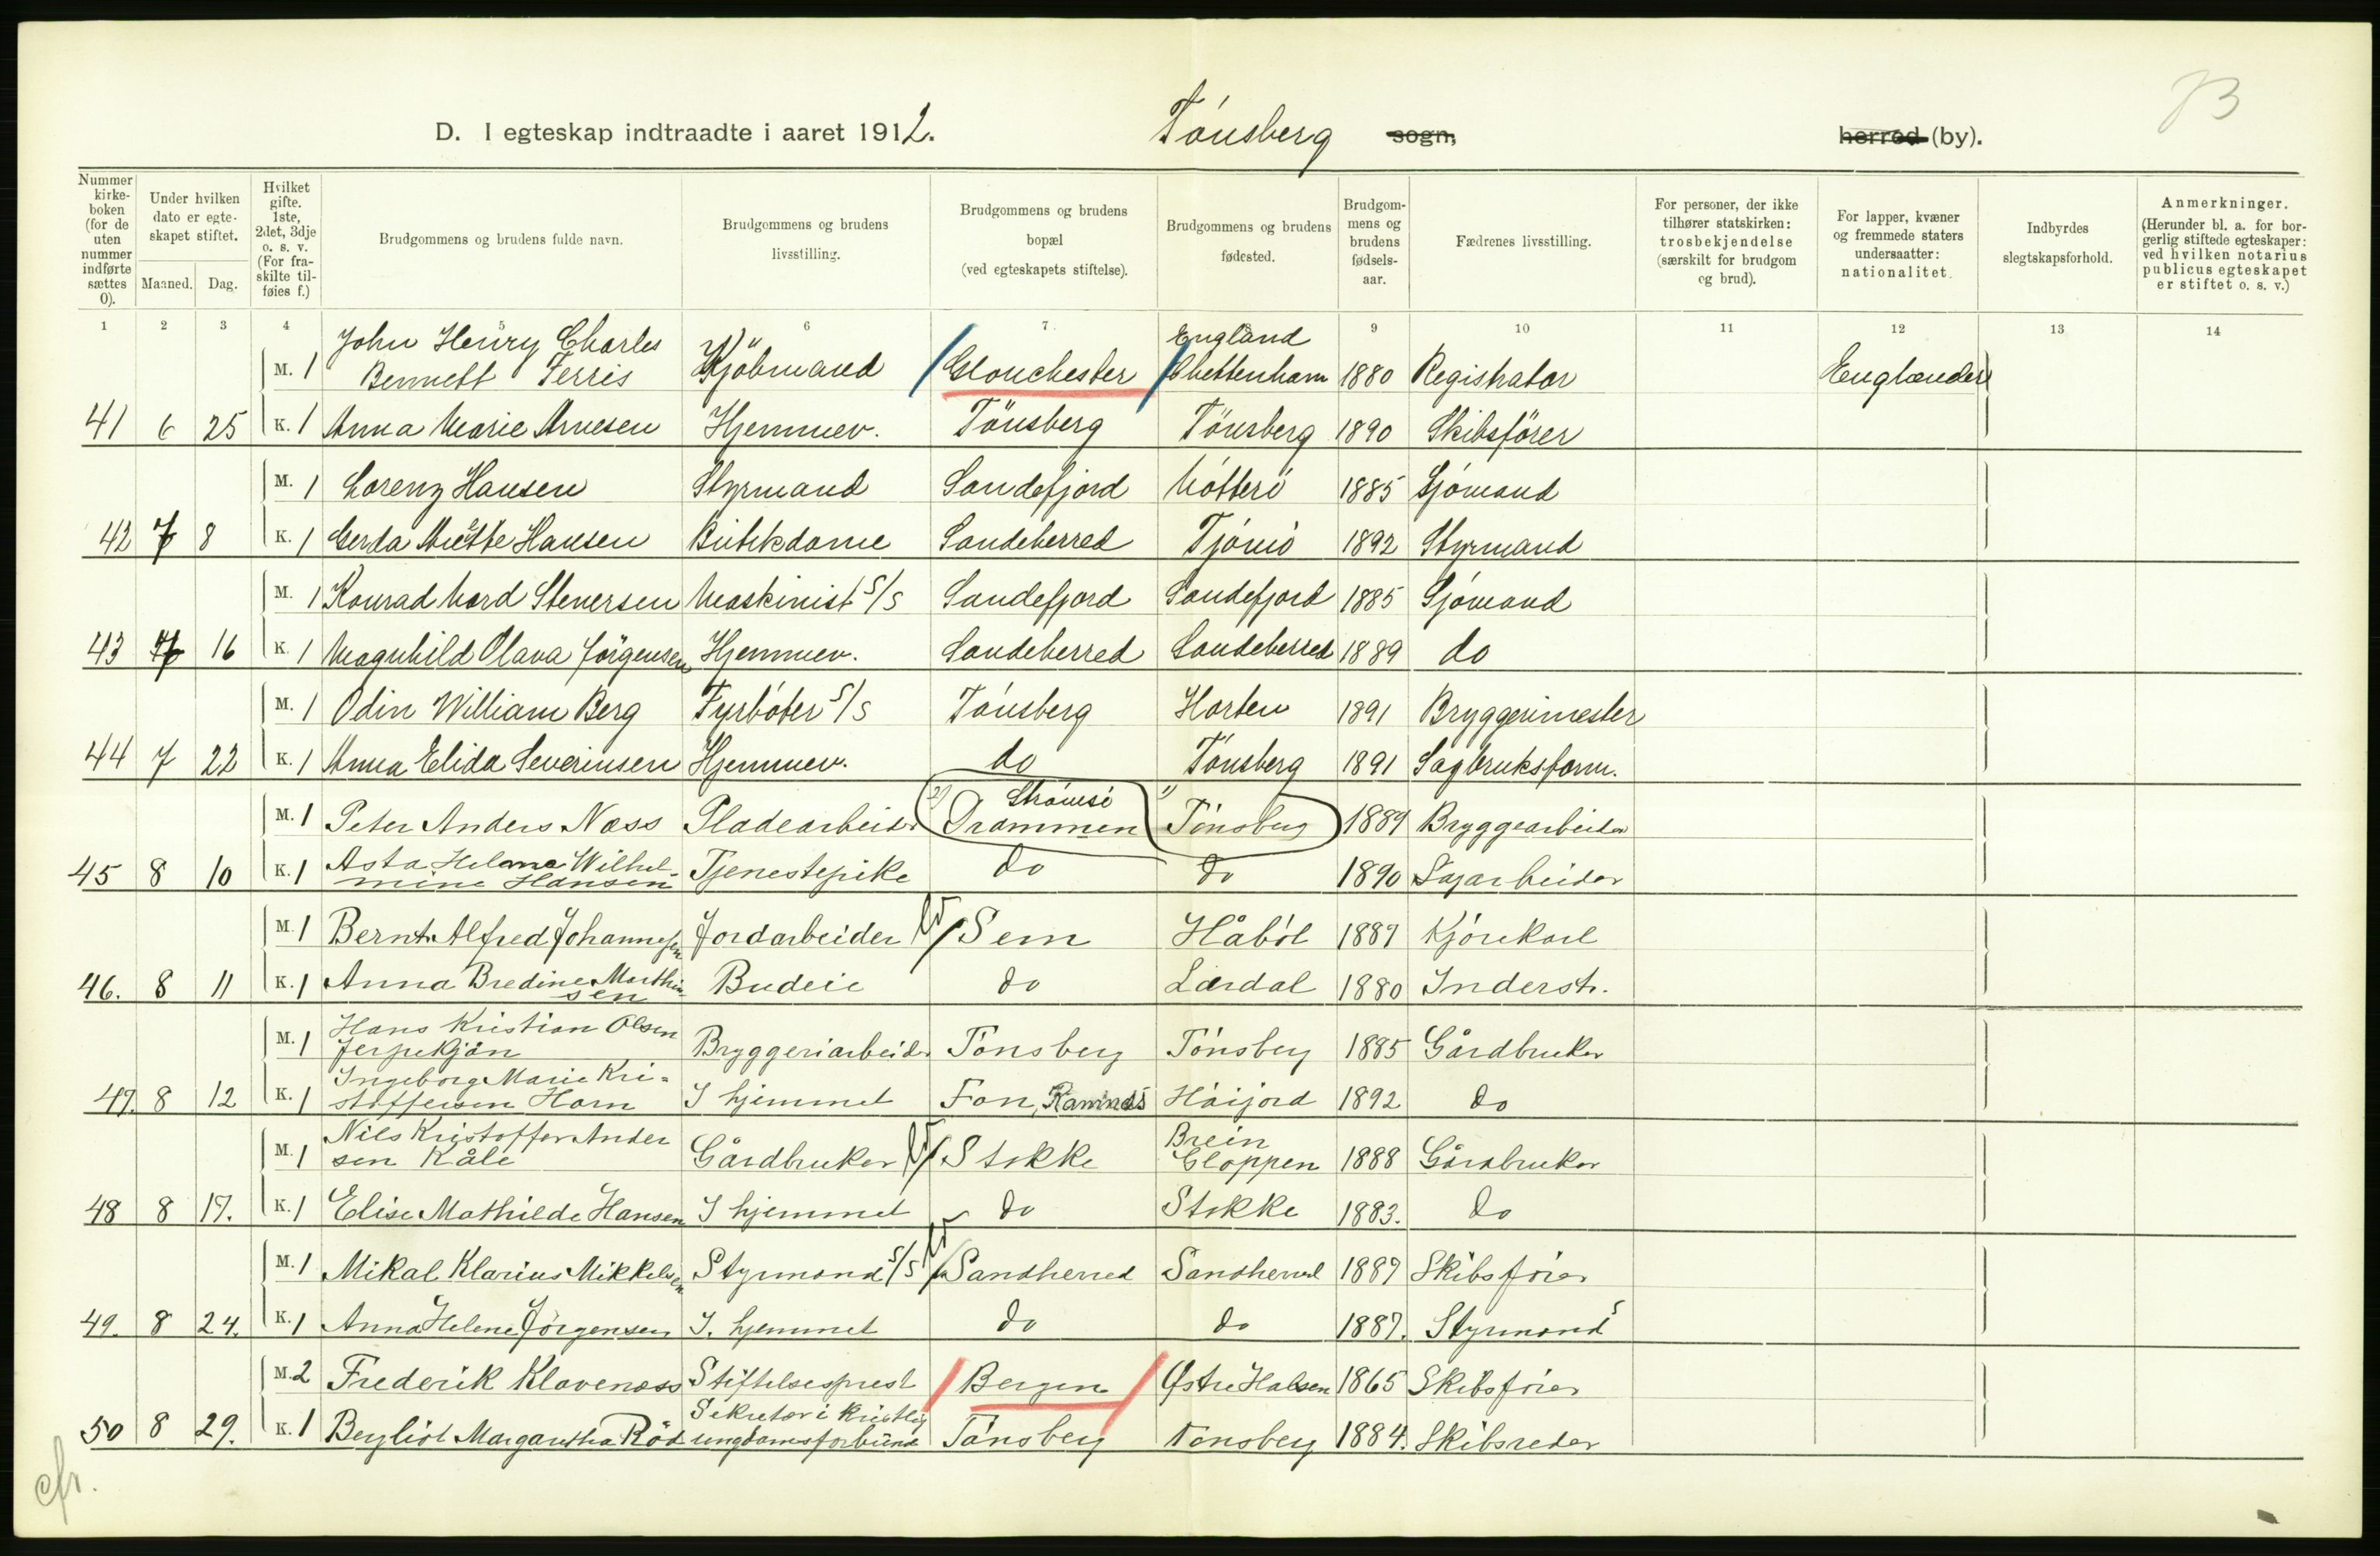 73
D. I egteskap indtraadte i aaret 1912. Tónsberg sogn, herred (by).
Nummer kirke-boken (for de uten nummer indførte sættes 0). Under hvilken dato er egte-skapet stiftet. Maaned. Dag. Hvilket gifte. 1ste, 2det, 3dje o. s. v. (For fra-skilte til-føies f.) Brudgommens og brudens fulde navn. Brudgommens og brudens livsstilling. Brudgommens og brudens bopæl (ved egteskapets stiftelse). Brudgommens og brudens fødested. Brudgom-mens og brudens fødsels-aar. Fædrenes livsstilling. For personer, der ikke tilhører statskirken: trosbekjendelse (særskilt for brudgom og brud). For lapper, kvæner og fremmede staters undersaatter: nationalitet. Indbyrdes slegtskapsforhold. Anmerkninger. (Herunder bl. a. for bor-gerlig stiftede egteskaper: ved hvilken notarius publicus egteskapet er stiftet o. s. v.)
1 2 3 4 5 6 7 8 9 10 11 12 13 14
John Henry Charles England
M. 1 Bennett Ferris Kjöbmand Glouchester Chettenham 1880 Registrator Englænder
41 6 25 K. 1 Anna Marie Arnesen Hjemmev. Tönsberg Tönsberg 1890 Skibsförer
M. 1 Lorenz Hansen Styrmand Sandefjord Nótteró 1885 Sjómand
42 7 8 K. 1 Gerda Mette Hansen Butikdame Sandeherred Tjómó 1892 Styrmand
M. 1 Konrad Mard Stenersen Maskinist S/S Sandefjord Sandefjord 1885 Sjómand
43 7 16 K. 1 Magnhild Olava Jörgensen Hjemmev. Sandeherred Sandeherred 1889 do
M. 1 Odin William Berg Fyrbóter S/S Tónsberg Horten 1891 Bryggerimester
44 7 22 K. 1 Anna Elida Severinsen Hjemmev. do Tónsberg 1891 Sagbruksform.
2) Strómsó 1)
M. 1 Peter Anders Næss Pladearbeider Drammen Tónsberg 1889 Bryggearbeider
Asta Helene Wilhel-
45 8 10 K. 1 mine Hansen Tjenestepike do do 1890 Sagarbeider
M. 1 Bernt Alfred Johannesen Jordarbeider Sem Håból 1889 Kjórekarl
46. 8 11 K. 1 Anna Bredine Marthin-sen Budeie do Lærdal 1880 Inderst.
Hans Kristian Olsen
M. 1 Jerpekjön Bryggeriarbeider Tónsberg Tónsberg 1885 Gårdbruker
Ingeborg Marie Kri-
47. 8 12 K. 1 stoffersen Horn I hjemmet Fon, Ramnes Hóijord 1892 do
Nils Kristoffer Ander Brein
M. 1 sen Kåle Gårdbruker Stokke Gloppen 1888 Gårdbruker
48 8 17. K. 1 Elise Mathilde Hansen I hjemmet do Stokke 1883. do
M. 1 Mikal Klarius Mikkelsen Styrmand S/S Sandherred Sandherred 1887 Skibsfórer
49. 8 24. K. 1 Anna Helene Jörgensen I. hjemmet do do 1887. Styrmand
M. 2 Frederik Klaveness Stiftelsesprest Bergen Østre Halsen 1865 Skibsfórer
Sekretær i Kristlig
50 8 29. K. 1 Bergliot Margaretha Röd ungdomsforbund Tónsberg Tónsberg 1884. Skibsreder
cfr.